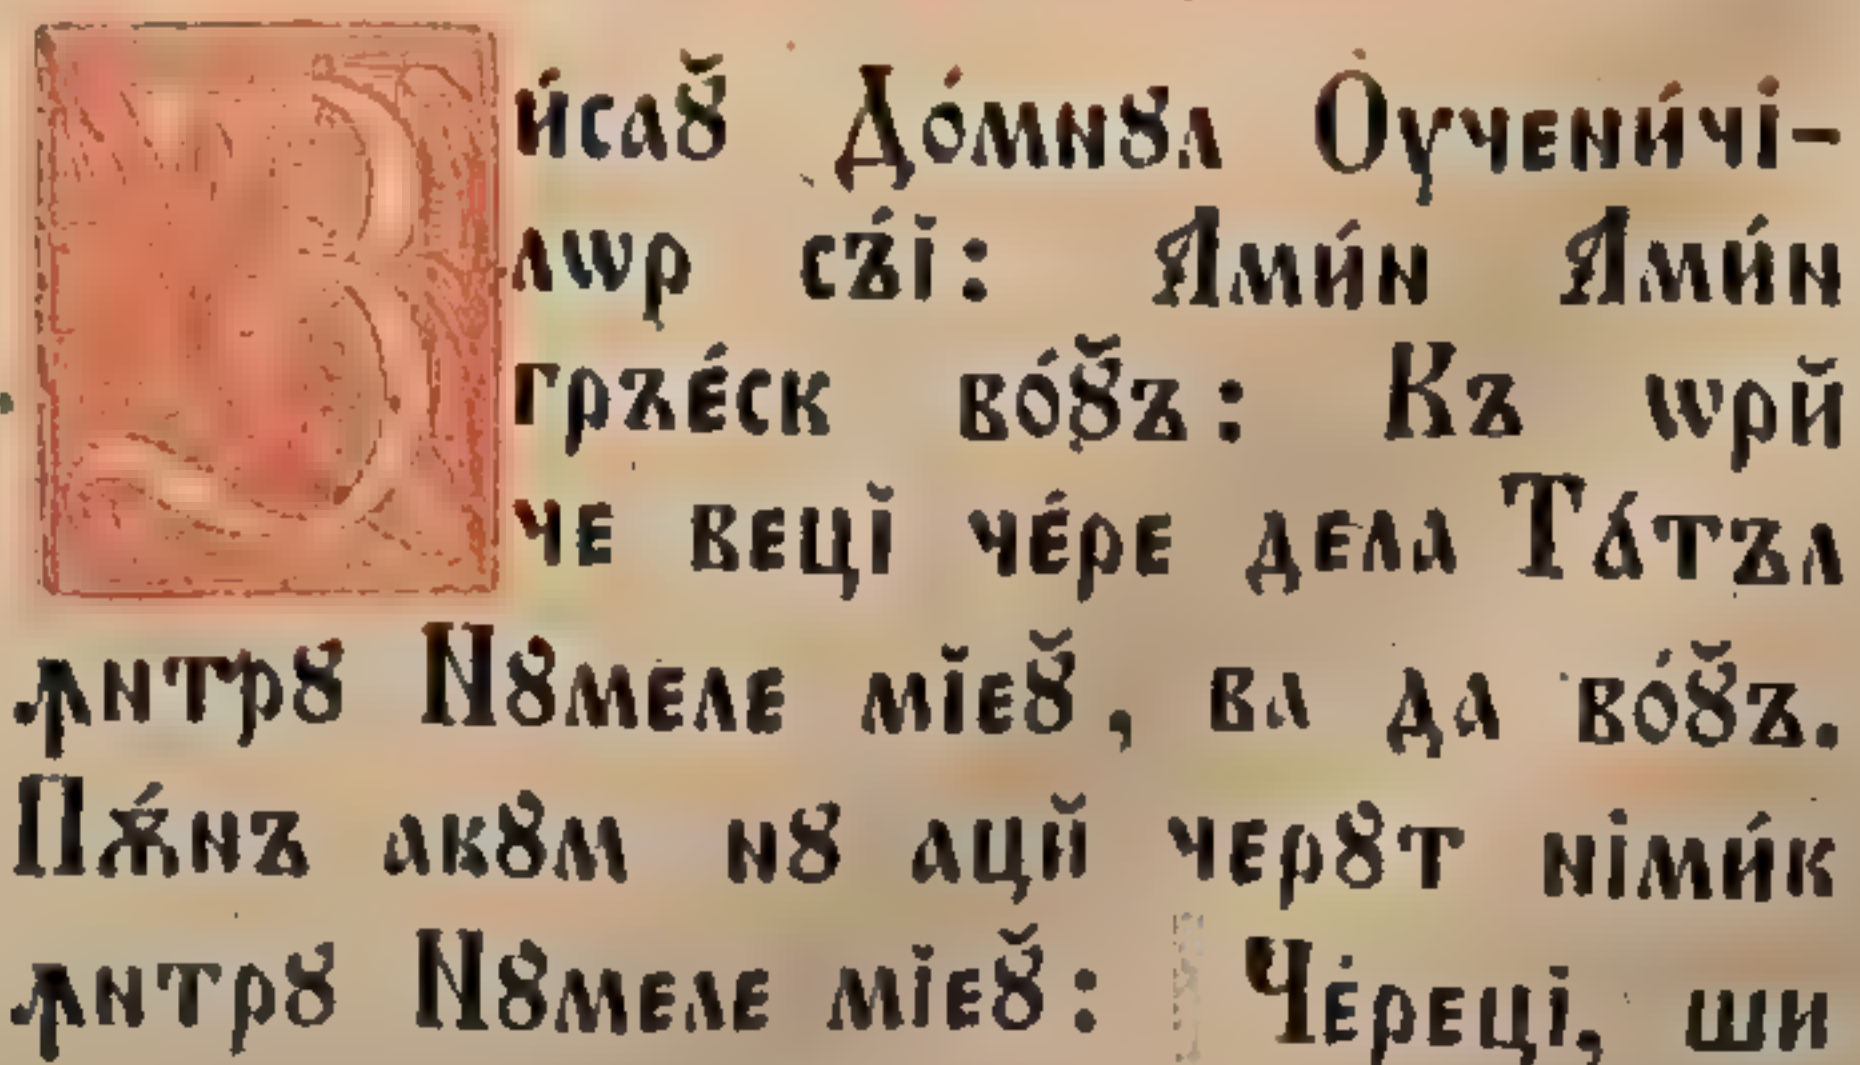 Зи́саꙋ̆ До́мнꙋл Оу҆чени́чі-
лѡр съ́і: Ами́н Ами́н
гръе́ск во́ꙋ̆ъ: Къ ѡрй
че веці̆ че́ре дела Та́тъл
ꙟнтрꙋ Нꙋмеле мі̆еꙋ̆, ва да во́ꙋ̆ъ.
Пѫ́нъ акꙋм нꙋ ацй черꙋт німи́к
ꙟнтрꙋ Нꙋмеле мі̆еꙋ̆: Че́реці, ши